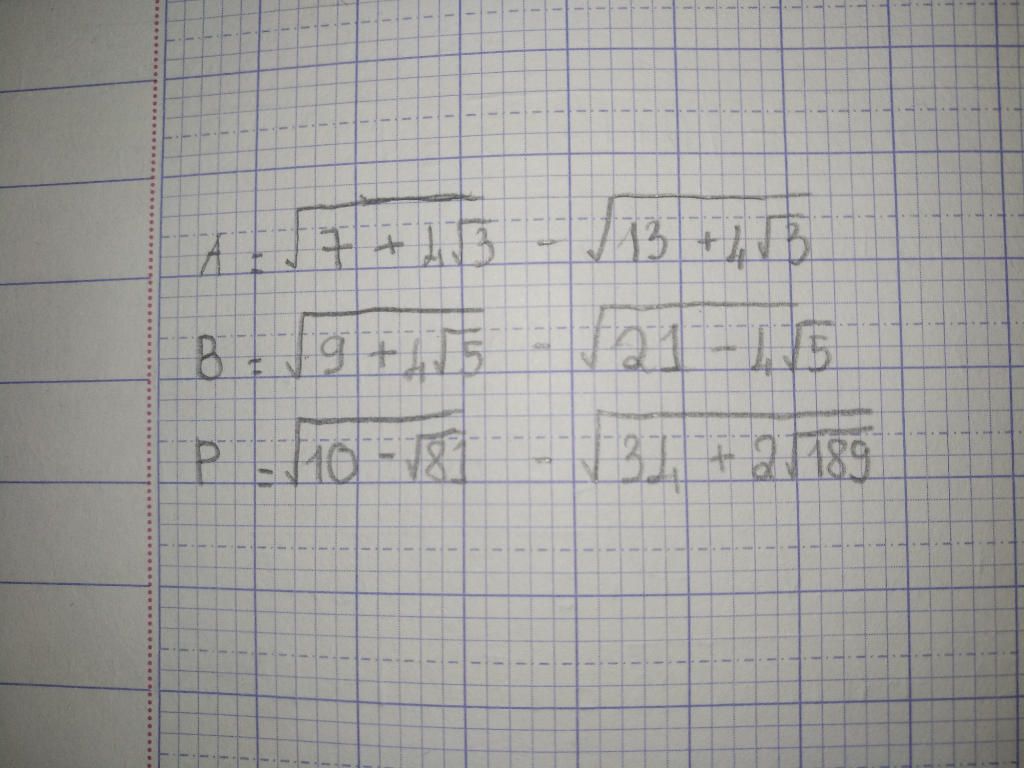 A = √(7 + 4√3) - √(13 + 4√3)
B = √(9 + 4√5) - √(21 - 4√5)
P = √(10 - √81) - √(34 + 2√189)